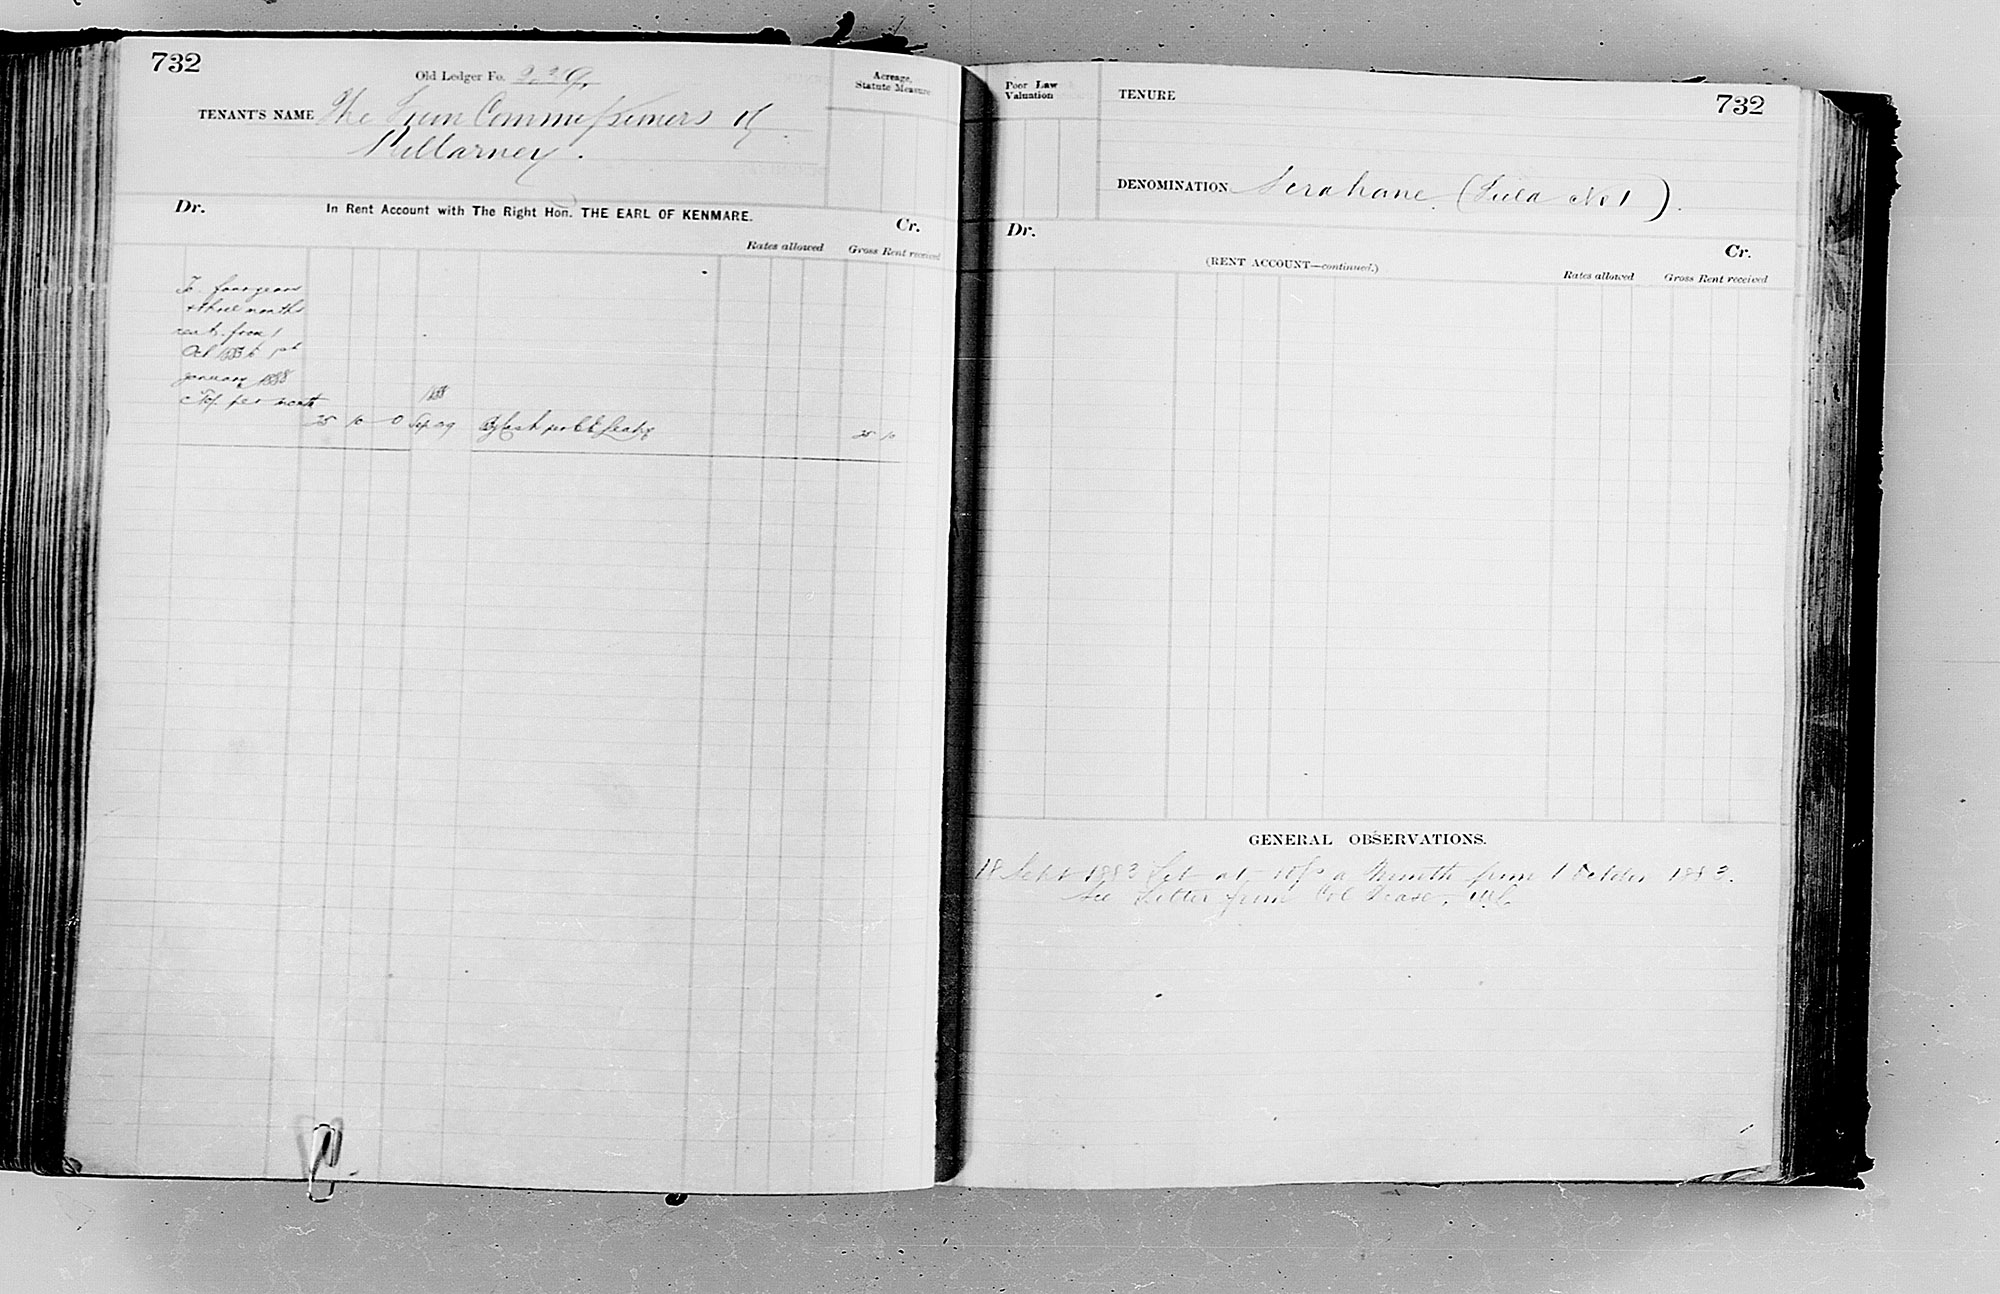 732
Old Ledger Fo. 229.
Acreage,
Statute Measure
TENANT'S NAME The Town Commissioners of
Killarney.
Dr. In Rent Account with The Right Hon. THE EARL OF KENMARE. Cr.
Rates allowed Gross Rent received
To four years
& three months
rent from 1
Oct 1883 to 1st
January 1888
10/- per month
1888
25 10 0 Sep 29 By Cash per 25 10
Poor Law
Valuation
TENURE
732
DENOMINATION Scrahane (Field No 1).
Dr. Cr.
(RENT ACCOUNT—continued.)
Rates allowed Gross Rent received
GENERAL OBSERVATIONS.
18 Sept 1883 Let at 10/- a Month from 1 October 1883.
See Letter from Col